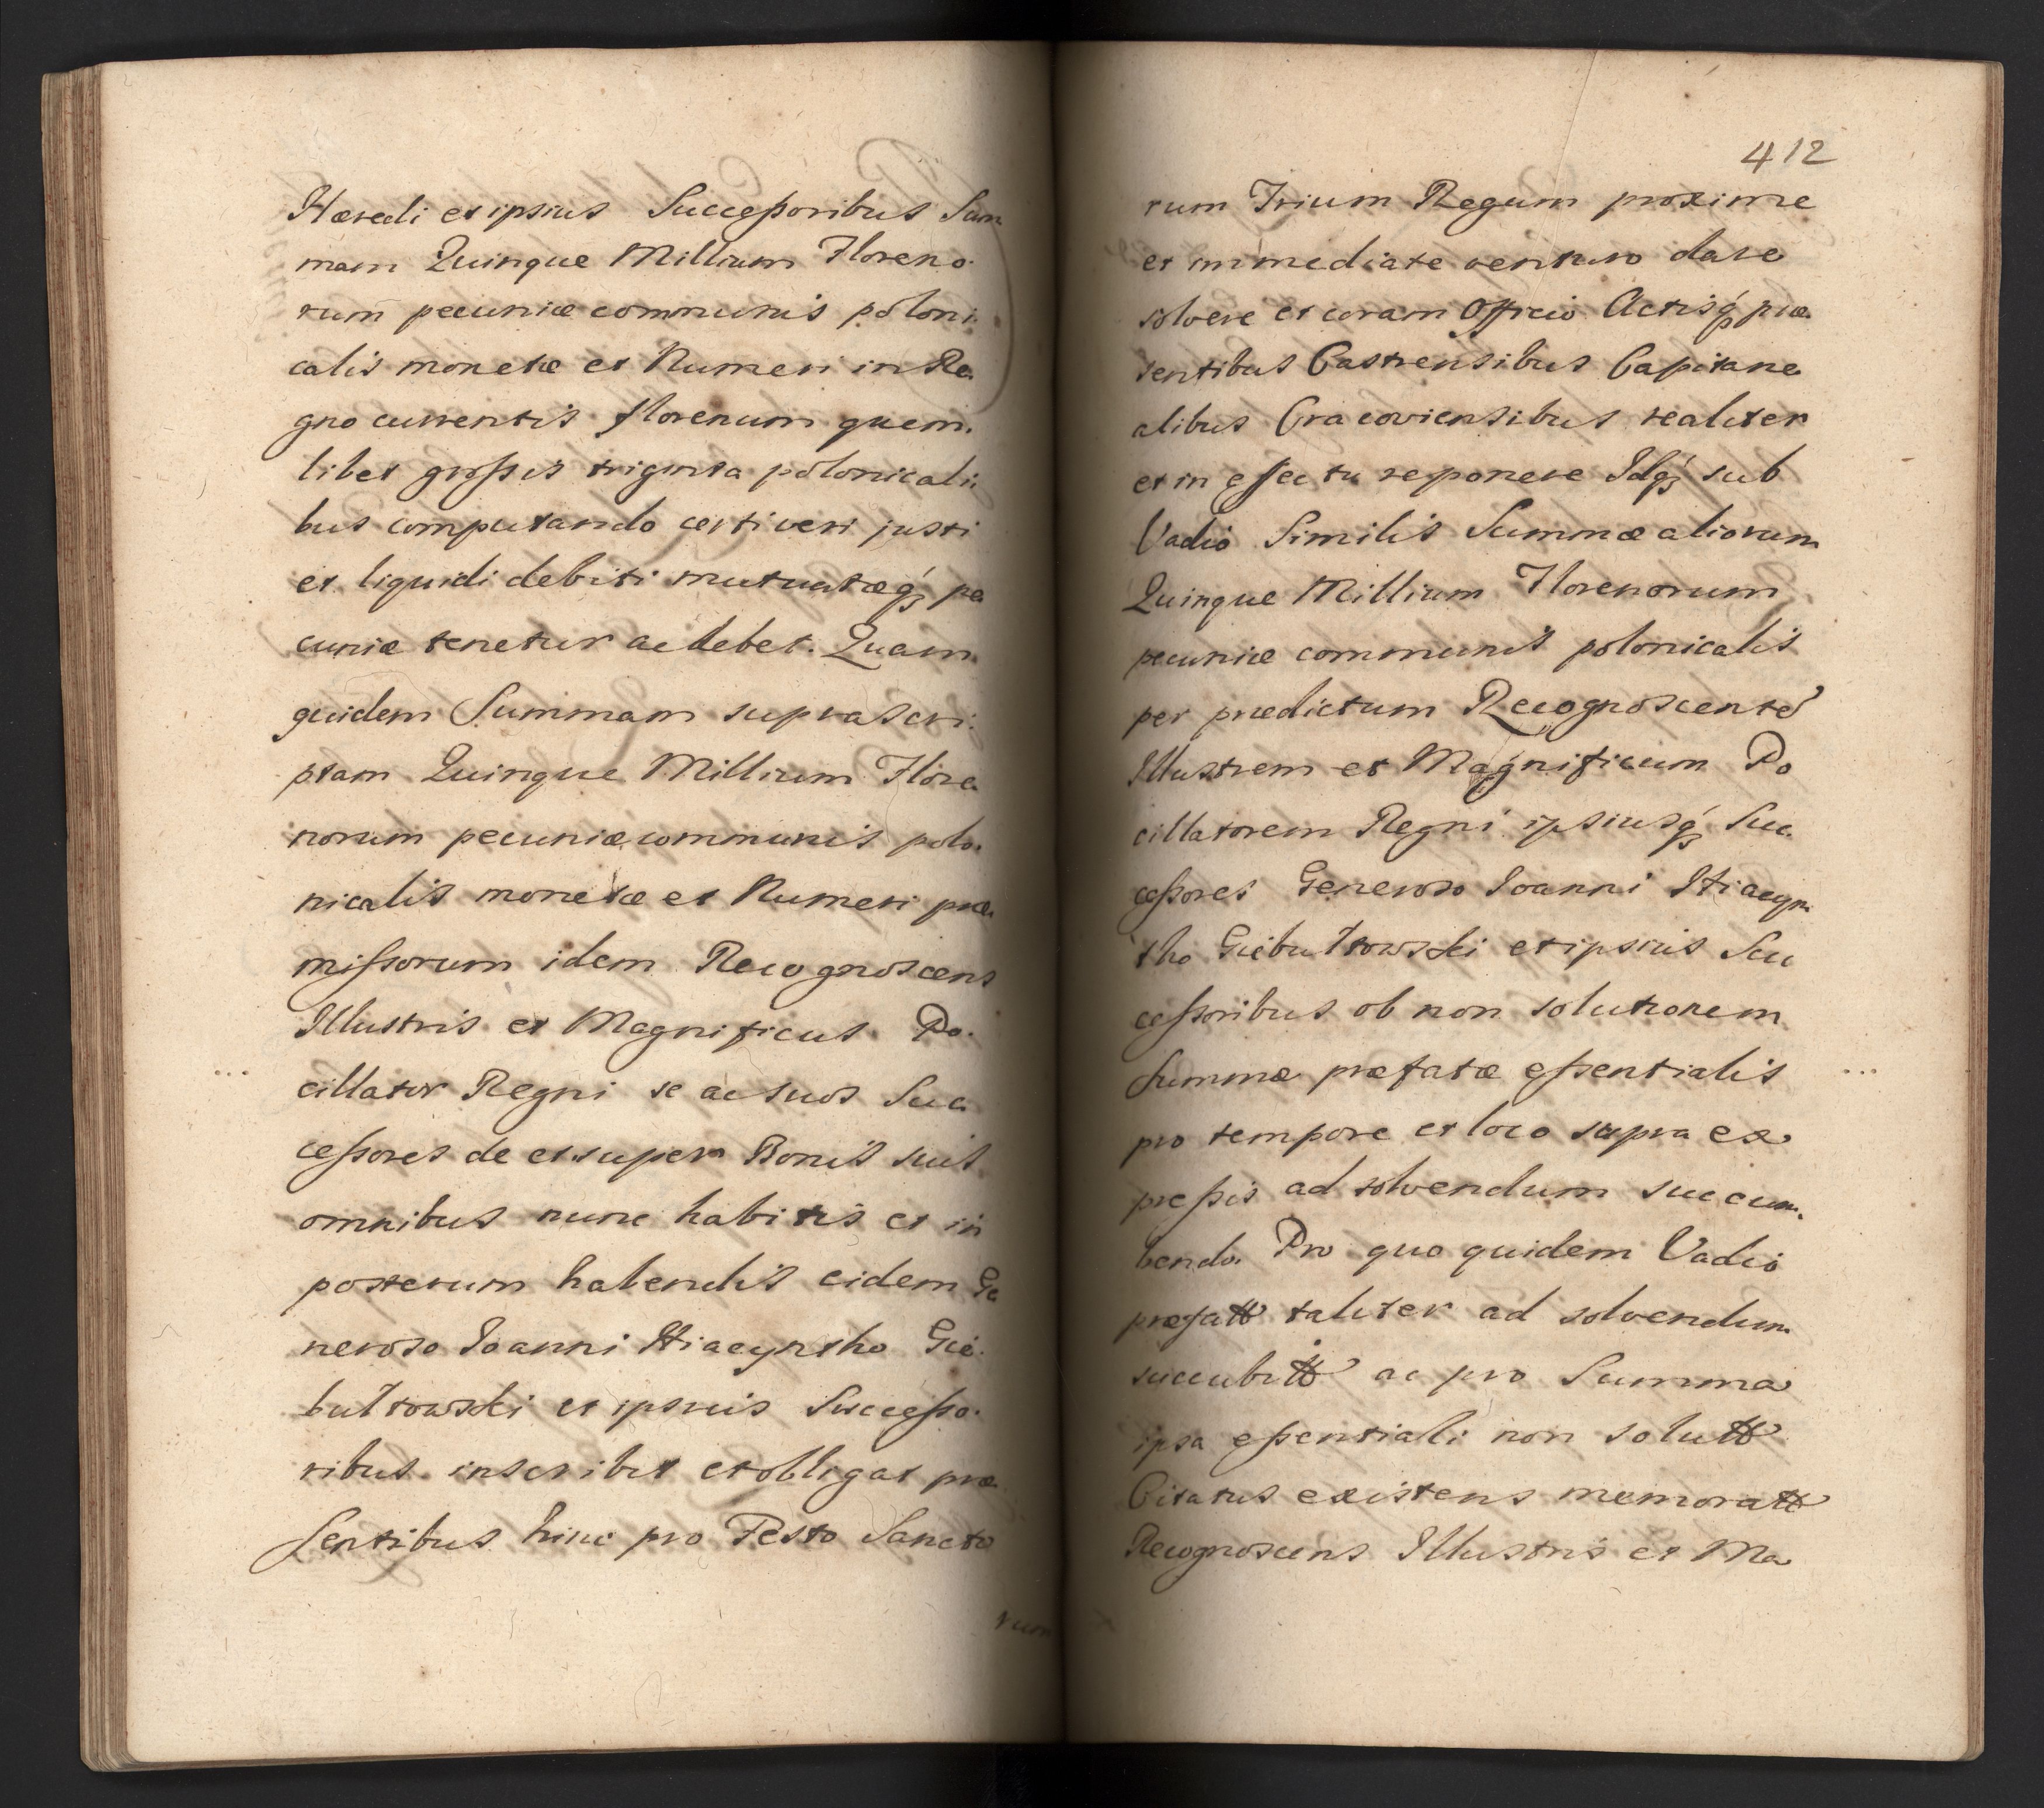 Hæredi et ipsius Succeßoribus Sum
mam Quinque Millium Floreno.
rum pecuniæ communis poloni.
calis monetæ et Numeri in Re.
gno currentis florenum quem.
libet großis triginta polonicali.
bus computando certi veri justi
et liquidi debiti mutuatæq́ꝫ pe
cuniæ tenetur ac debet. Quam
quidem Summam suprascri.
ptam Quinque Millium Flore.
norum pecuniæ communis polo.
nicalis monetæ et Numeri præ.
mißorum idem Recognoscens
Illustris et Magnificus Po.
cillator Regni se ac suos Suc.
ceßores de et super Bonis suis
omnibus nunc habitis et in
posterum habendis eidem Ge
neroso Joanni Hiacyntho Gie.
bułtowski et ipsius Succeßo.
ribus inscribit et obligat præ.
sentibus hinc pro Festo Sancto
rum
412
rum Trium Regum proxime
et immediate venturo dare
solvere et coram Officio Actisq́ꝫ præ.
sentibus Castrensibus Capitane
alibus Cracoviensibus realiter
et in effectu reponere Idq́ꝫ sub
Vadio Similis Summæ aliorum
Quinque Millium Florenorum
pecuniæ communis polonicalis
per prædictum Recognoscentē
Illustrem et Magnificum Po
cillatorem Regni ipsiusq́ꝫ Suc.
ceßores Generoso Joanni Hiacyn.
tho Giebułtowski et ipsius Suc
ceßoribus ob non solutionem
Summæ præfatæ eßentialis
pro tempore et loco supra ex
preßis ad solvendum succum.
bendo. Pro quo quidem Vadio
præfatt taliter ad solvendum
succubitt ac pro Summa
ipsa eßentiali non solutt
Citatus existens memoratt
Recognoscens Illustris et Ma